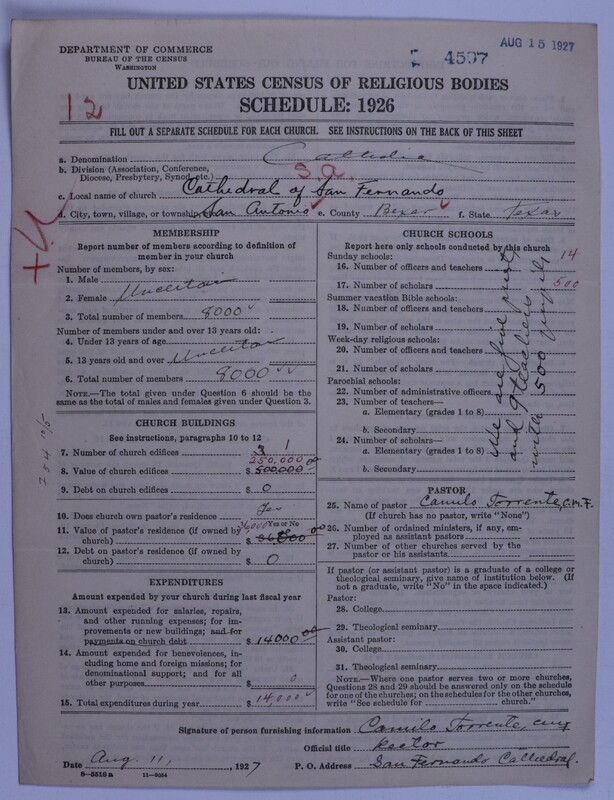 AUG 15 1927
4597
DEPARTMENT OF COMMERCE
BUREAU OF THE CENSUS
WASHINGTON
UNITED STATES CENSUS OF RELIGIOUS BODIES
SCHEDULE: 1926
12
FILL OUT A SEPARATE SCHEDULE FOR EACH CHURCH. SEE INSTRUCTIONS ON THE BACK OF THIS SHEET
a. Denomination Catholic
b. Division (Association, Conference, Diocese, Presbytery, Synod, etc.) S.A.
c. Local name of church Cathedral of San Fernando
d. City, town, village, or township San Antonio e. County Bexar f. State Texas
MEMBERSHIP
Report number of members according to definition of
member in your church
Number of members, by sex:
1. Male
2. Female
3. Total number of members 8000
Number of members under and over 13 years old:
4. Under 13 years of age
5. 13 years old and over
6. Total number of members 8000
NOTE.—The total given under Question 6 should be
same as the total of males and females given under Question 3.
CHURCH BUILDINGS
See instructions, paragraphs 10 to 12
7. Number of church edifices 1
250,000
8. Value of church edifices $ 500,000
9. Debt on church edifices $ 0
10. Does church own pastor's residence? Yes
Yes or No
11. Value of pastor's residence (if owned by
church) $
12. Debt on pastor's residence (if owned by
church) $ 0
EXPENDITURES
Amount expended by your church during last fiscal year
13. Amount expended for salaries, repairs,
and other running expenses; for im-
provements or new buildings; and for
payments on church debt $ 14000 00
14. Amount expended for benevolences, in-
cluding home and foreign missions; for
denominational support; and for all
other purposes $ 0
15. Total expenditures during year $ 14,000
CHURCH SCHOOLS
Report here only schools conducted by this church
Sunday schools:
16. Number of officers and teachers 14
17. Number of scholars 500
Summer vacation Bible schools:
18. Number of officers and teachers
19. Number of scholars
Week-day religious schools:
20. Number of officers and teachers
21. Number of scholars
Parochial schools:
22. Number of administrative officers
23. Number of teachers—
a. Elementary (grades 1 to 8)
b. Secondary
24. Number of scholars—
a. Elementary (grades 1 to 8)
b. Secondary
We are five priests
and 9 teachers
with 500 pupils
PASTOR
25. Name of pastor Camilo Torrente, C.M.F.
(If church has no pastor, write "None")
26. Number of ordained ministers, if any, em-
ployed as assistant pastors
27. Number of other churches served by the
pastor or his assistants
If pastor (or assistant pastor) is a graduate of a college or
theological seminary, give name of institution below. (If
not a graduate, write "No" in the space indicated.)
Pastor:
28. College
29. Theological seminary
Assistant pastor:
30. College
31. Theological seminary
NOTE.—Where one pastor serves two or more churches,
Questions 28 and 29 should be answered only on the schedule
for one of the churches; on the schedules for the other churches,
write "See schedule for church."
Signature of person furnishing information Camilo Torrente, cmf
Official title Rector
Date Aug. 11, 1927 P. O. Address San Fernando Cathedral.
8—5518 a 11—9054